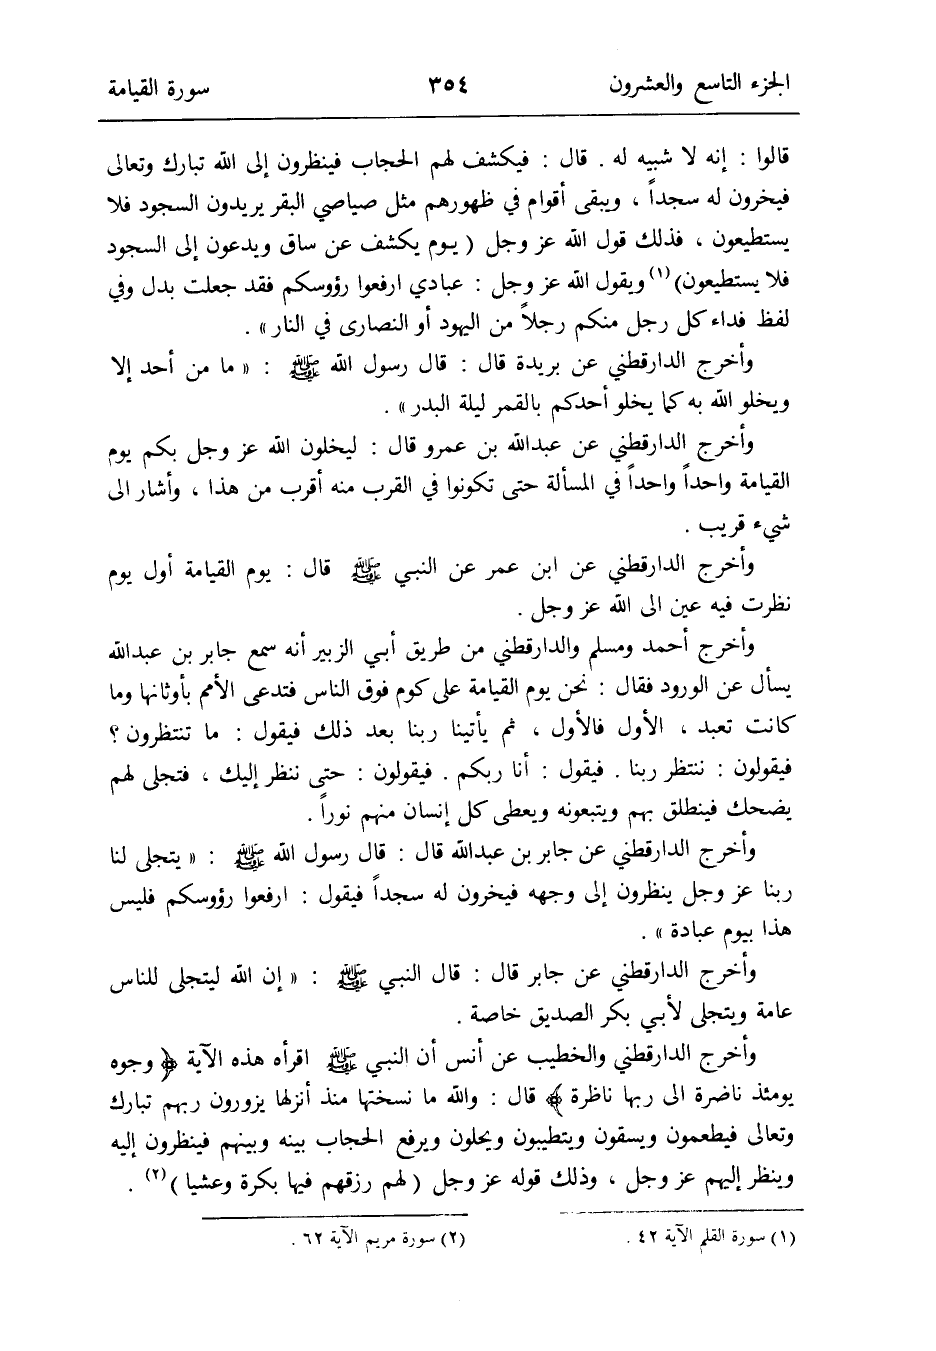 الجزء التاسع والعشرون ٣٥٤ سورة القيامة
قالوا : إنه لا شبيه له . قال : فيكشف لهم الحجاب فينظرون إلى الله تبارك وتعالى
فيخرون له سجداً ، ويبقى أقوام في ظهورهم مثل صياصي البقر يريدون السجود فلا
يستطيعون ، فذلك قول الله عز وجل ( يوم يكشف عن ساق ويدعون إلى السجود
فلا يستطيعون)(١) ويقول الله عز وجل : عبادي ارفعوا رؤوسكم فقد جعلت بدل وفي
لفظ فداء كل رجل منكم رجلاً من اليهود أو النصارى في النار » .
وأخرج الدارقطني عن بريدة قال : قال رسول الله ﷺ : « ما من أحد إلا
ويخلو الله به كما يخلو أحدكم بالقمر ليلة البدر » .
وأخرج الدارقطني عن عبدالله بن عمرو قال : ليخلون الله عز وجل بكم يوم
القيامة واحداً واحداً في المسألة حتى تكونوا في القرب منه أقرب من هذا ، وأشار الى
شيء قريب .
وأخرج الدارقطني عن ابن عمر عن النبي ﷺ قال : يوم القيامة أول يوم
نظرت فيه عين الى الله عز وجل .
وأخرج أحمد ومسلم والدارقطني من طريق أبي الزبير أنه سمع جابر بن عبدالله
يسأل عن الورود فقال : نحن يوم القيامة على كوم فوق الناس فتدعى الأمم بأوثانها وما
كانت تعبد ، الأول فالأول ، ثم يأتينا ربنا بعد ذلك فيقول : ما تنتظرون ؟
فيقولون : ننتظر ربنا . فيقول : أنا ربكم . فيقولون : حتى ننظر إليك ، فتجلى لهم
يضحك فينطلق بهم ويتبعونه ويعطى كل إنسان منهم نوراً .
وأخرج الدارقطني عن جابر بن عبدالله قال : قال رسول الله ﷺ : « يتجلى لنا
ربنا عز وجل ينظرون إلى وجهه فيخرون له سجداً فيقول : ارفعوا رؤوسكم فليس
هذا بيوم عبادة » .
وأخرج الدارقطني عن جابر قال : قال النبي ﷺ : « إن الله ليتجلى للناس
عامة ويتجلى لأبي بكر الصديق خاصة .
وأخرج الدارقطني والخطيب عن أنس أن النبي ﷺ اقرأه هذه الآية ﴿ وجوه
يومئذ ناضرة الى ربها ناظرة ﴾ قال : والله ما نسختها منذ أنزلها يزورون ربهم تبارك
وتعالى فيطعمون ويسقون ويتطيبون ويحلون ويرفع الحجاب بينه وبينهم فينظرون إليه
وينظر إليهم عز وجل ، وذلك قوله عز وجل ( لهم رزقهم فيها بكرة وعشيا )(٢) .
(١) سورة القلم الآية ٤٢ . (٢) سورة مريم الآية ٦٢ .